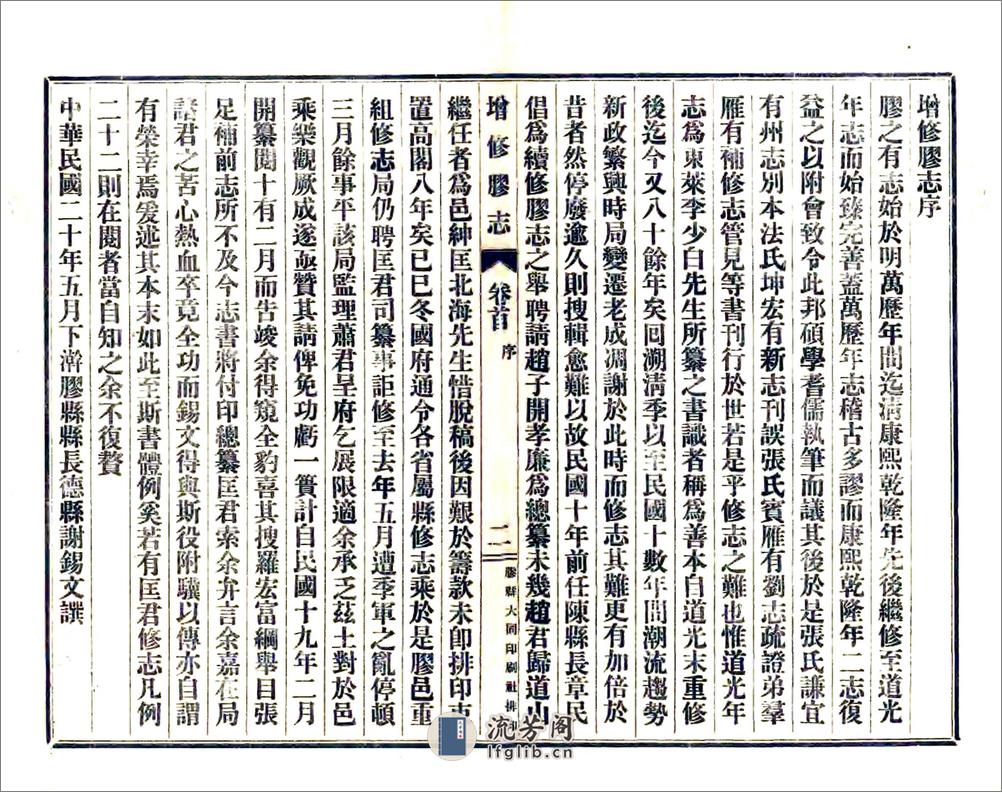 增修膠志序
膠之有志始於明萬歷年間迄淸康熙乾隆年先後繼修至道光
年志而始臻完善蓋萬歷年志稽古多謬而康熙乾隆年二志復
益之以附會致令此邦碩學耆儒執筆而議其後於是張氏謙宜
有州志別本法氏坤宏有新志刊誤張氏賓雁有劉志疏證弟羣
雁有補修志管見等書刊行於世若是乎修志之難也惟道光年
志爲東萊李少白先生所纂之書識者稱爲善本自道光末重修
後迄今又八十餘年矣囘溯淸季以至民國十數年間潮流趨勢
新政繁興時局變遷老成凋謝於此時而修志其難更有加倍於
昔者然停廢逾久則搜輯愈難以故民國十年前任陳縣長章民
倡爲續修膠志之舉聘請趙子開孝廉爲總纂未幾趙君歸道山
增修膠志
卷首
序
二
膠縣大同印刷社排印
繼任者爲邑紳匡北海先生惜脫稿後因艱於籌款未卽排印束
置高閣八年矣已巳冬國府通令各省屬縣修志乘於是膠邑重
組修志局仍聘匡君司纂事詎修至去年五月遭季軍之亂停頓
三月餘事平該局監理蕭君呈府乞展限適余承乏茲土對於邑
乘樂觀厥成遂亟贊其請俾免功虧一簣計自民國十九年二月
開纂閱十有二月而告竣余得窺全豹喜其搜羅宏富綱舉目張
足補前志所不及今志書將付印總纂匡君索余弁言余嘉在局
諸君之苦心熱血卒竟全功而錫文得與斯役附驥以傳亦自謂
有榮幸焉爰述其本末如此至斯書體例奚若有匡君修志凡例
二十二則在閱者當自知之余不復贅
中華民國二十年五月下澣膠縣縣長德縣謝錫文譔
流芳阁
lfglib.cn